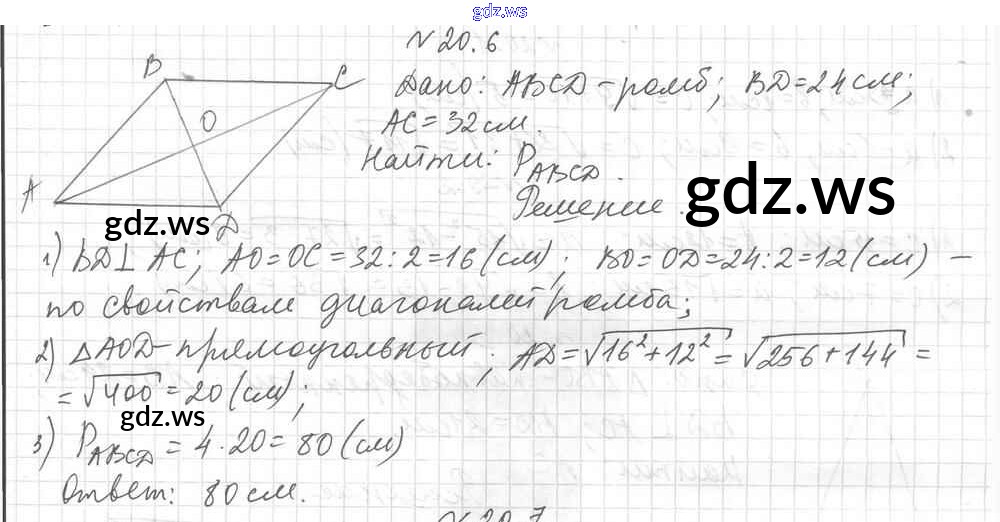 gdz.ws
N 20.6
B
C
O
A
D
Дано: ABCD - ромб; BD = 24 см;
AC = 32 см.
Найти: P ABCD.
Решение.
gdz.ws
gdz.ws
1) BD ⊥ AC; AO = OC = 32 : 2 = 16 (см); BO = OD = 24 : 2 = 12 (см) –
по свойствам диагоналей ромба;
2) △AOD - прямоугольный; AD = √16² + 12² = √256 + 144 =
= √400 = 20 (см);
gdz.ws
3) P ABCD = 4 · 20 = 80 (см)
Ответ: 80 см.
N 20.7